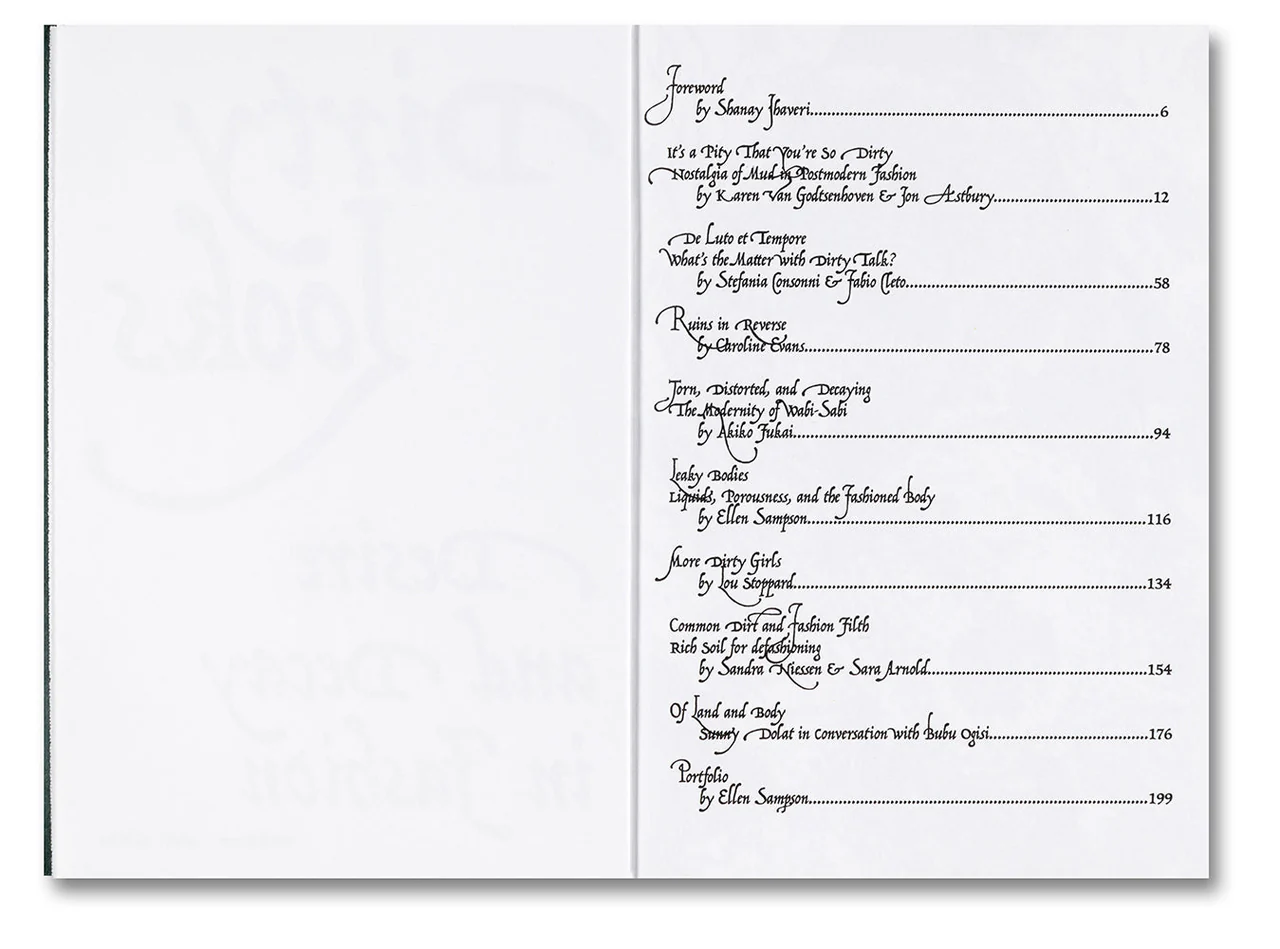 Dirty
Looks
Desire
and Decay
in Fashion
Foreword
by Shanay Jhaveri 6
It's a Pity That You're So Dirty
Nostalgia of Mud in Postmodern Fashion
by Karen Van Godtsenhoven & Jon Astbury 12
De Luto et Tempore
What's the Matter with Dirty Talk?
by Stefania Consonni & Fabio Cleto 58
Ruins in Reverse
by Caroline Evans 78
Torn, Distorted, and Decaying
The Modernity of Wabi-Sabi
by Akiko Fukai 94
Leaky Bodies
Liquids, Porousness, and the Fashioned Body
by Ellen Sampson 116
More Dirty Girls
by Lou Stoppard 134
Common Dirt and Fashion Filth
Rich Soil for defashioning
by Sandra Niessen & Sara Arnold 154
Of Land and Body
Sunny Dolat in Conversation with Bubu Ogisi 176
Portfolio
by Ellen Sampson 199